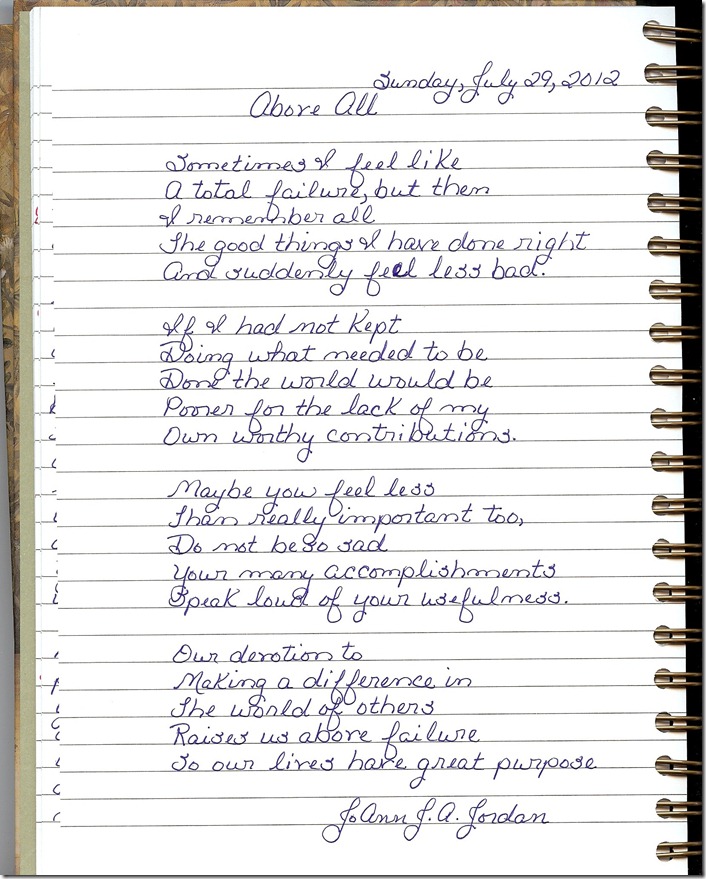 Sunday, July 29, 2012
Above All
Sometimes I feel like
A total failure, but then
I remember all
The good things I have done right
And suddenly feel less bad.
If I had not kept
Doing what needed to be
Done the world would be
Poorer for the lack of my
Own worthy contributions.
Maybe you feel less
Than really important too,
Do not be so sad
Your many accomplishments
Speak loud of your usefulness.
Our devotion to
Making a difference in
The world of others
Raises us above failure
So our lives have great purpose
JoAnn J.A. Jordan